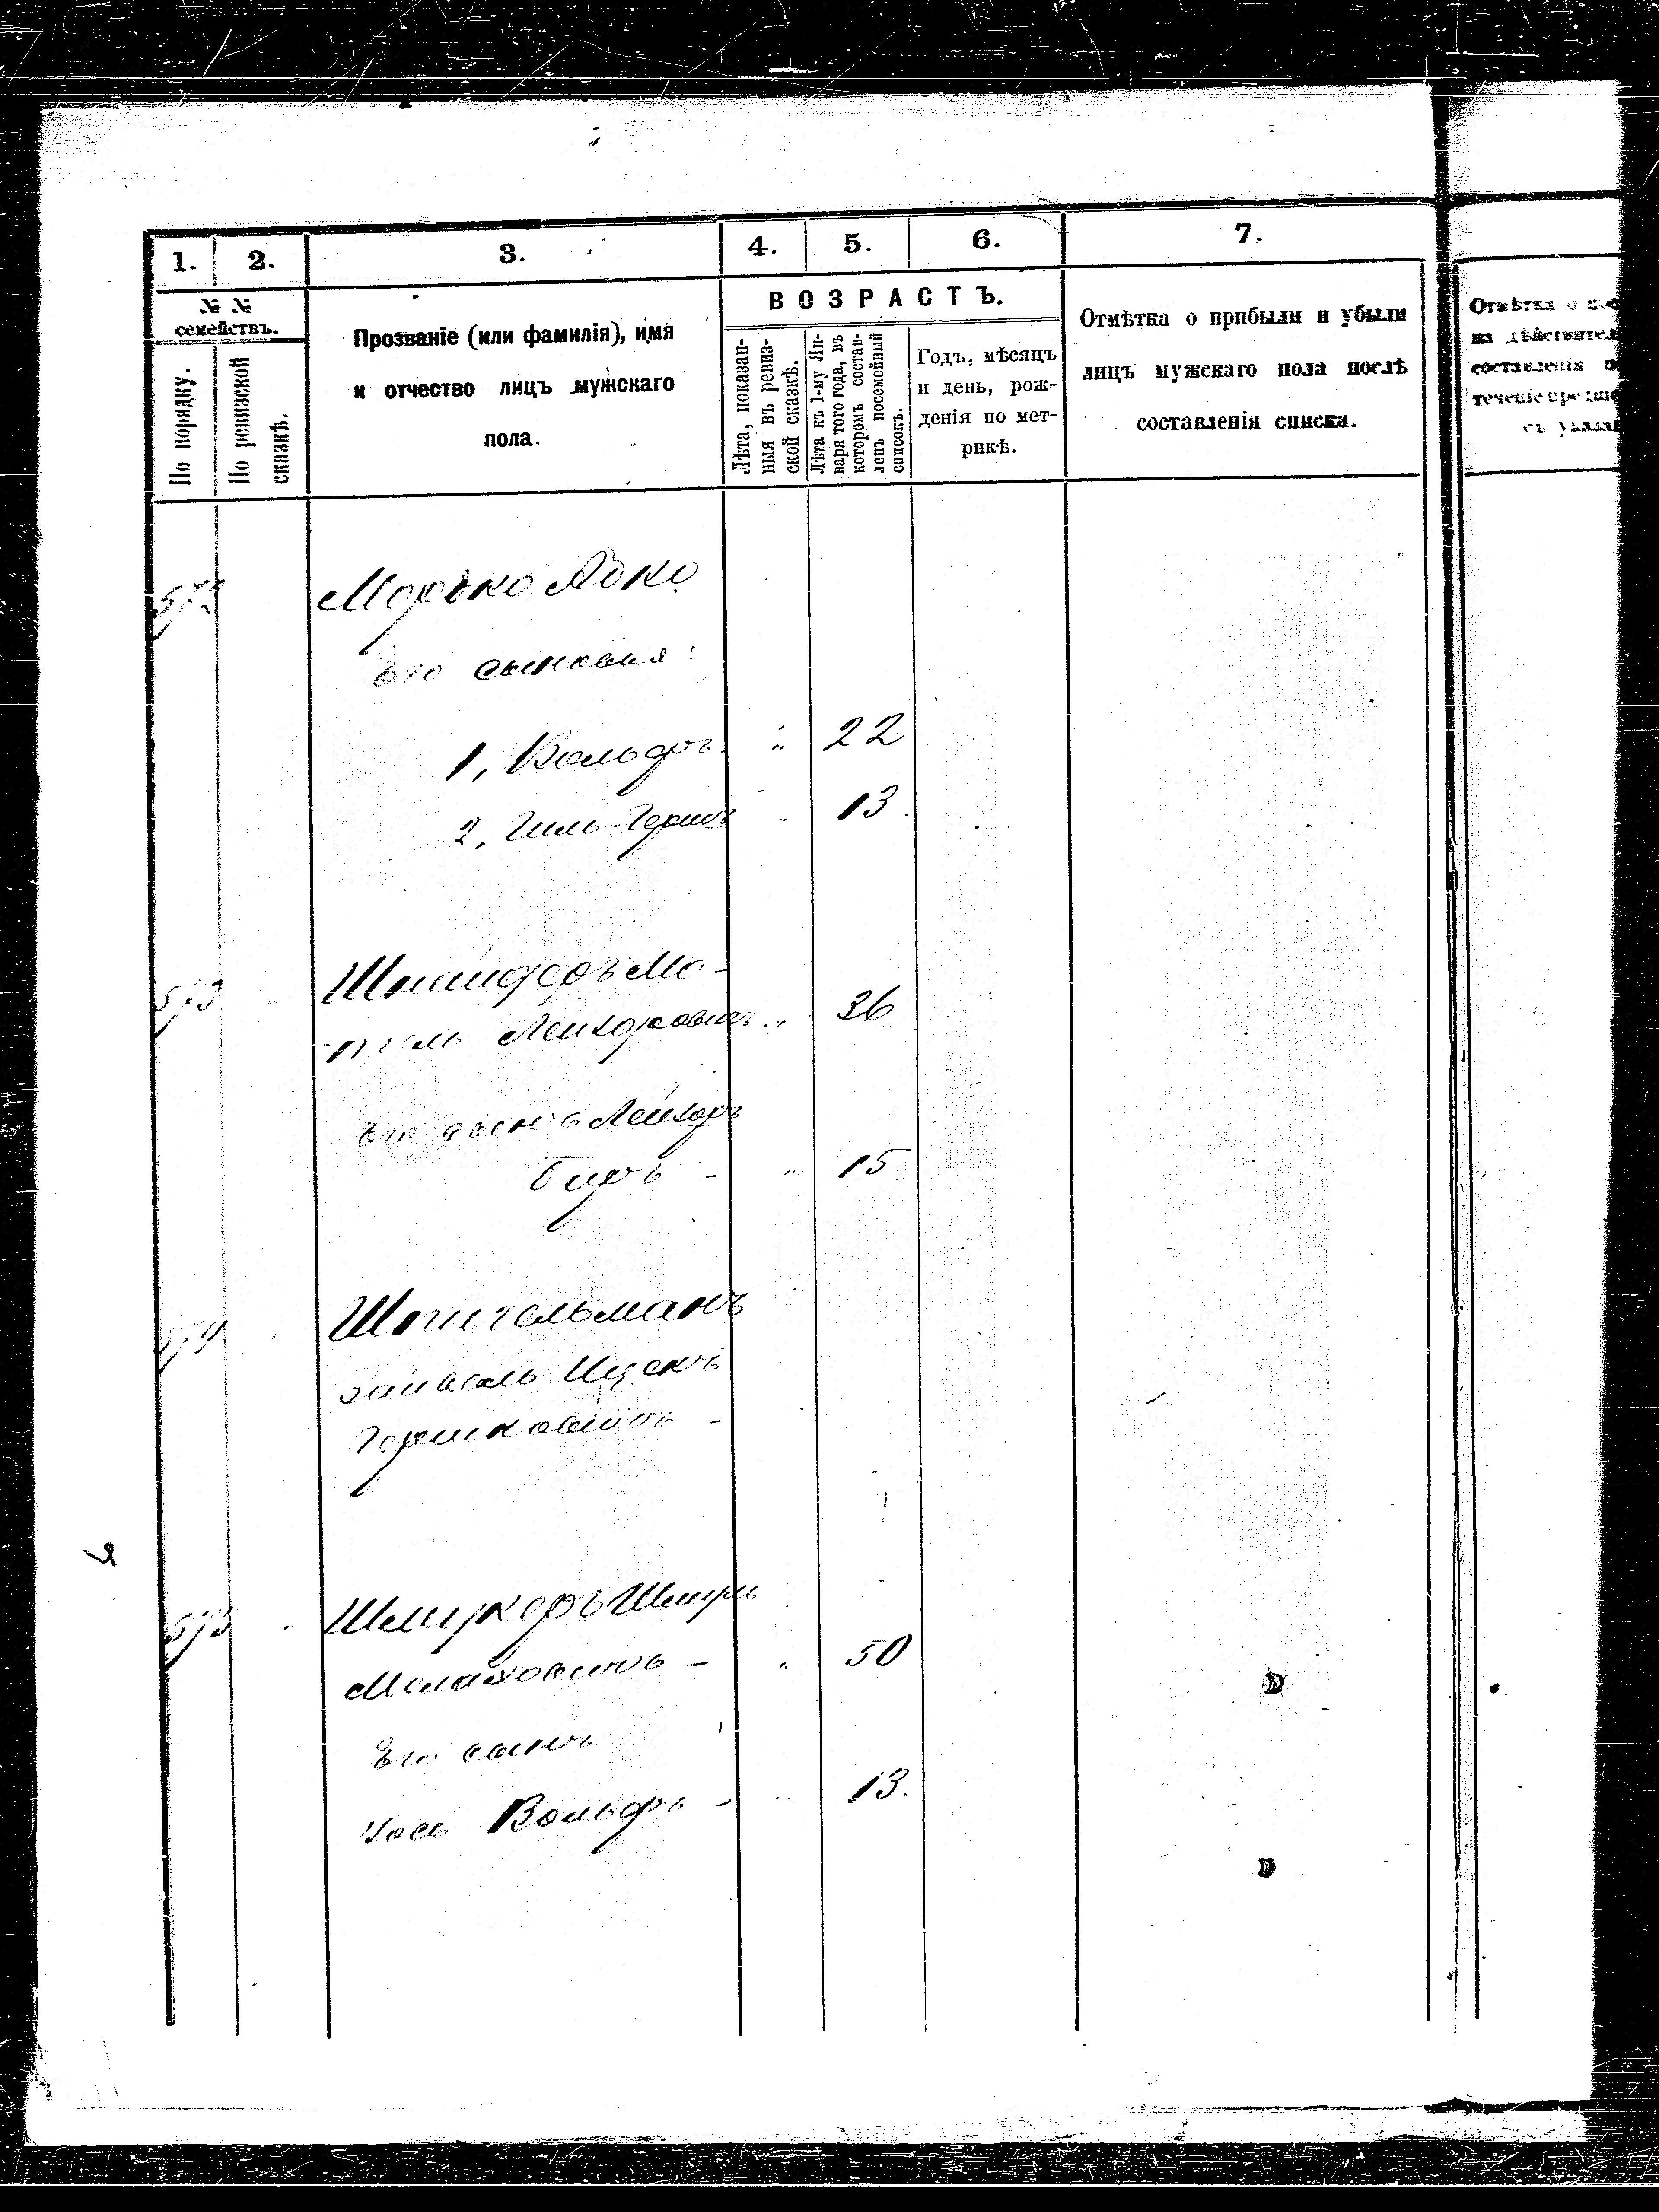 1. 2. 3. 4. 5. 6. 7.
№ №
семействъ.
По порядку.
По ревизской
сказкѣ.
Прозваніе (или фамилія), имя
и отчество лицъ мужскаго
пола.
ВОЗРАСТЪ.
Лѣта, показан-
ныя въ ревиз-
ской сказкѣ.
Лѣта къ 1-му Ян-
варя того года, въ
которомъ состав-
ленъ посемейный
списокъ.
Годъ, мѣсяцъ
и день, рож-
денія по мет-
рикѣ.
Отмѣтка о прибыли и убыли
лицъ мужскаго пола послѣ
составленія списка.
Отмѣтка о
составленія
течение
съ
572
Его сыновья:
1, Вольфъ 22
2, Гиль-Гершъ 13
573 Шнайдеръ Мо-
тель Лейзоровичъ 36
Его сынъ Лейзоръ
Беръ - 15
574 Шпигельманъ
Зайвель Ицекъ
Гершковичъ -
575 Шмукеръ Шмуль
Мелаховичъ - 50
Его сынъ
Іось Вольфъ - 13.